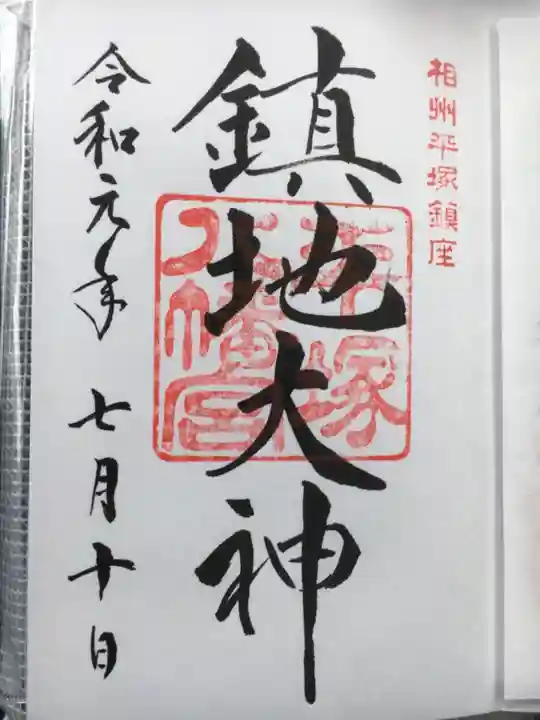 相州平塚鎮座
鎮地大神
平塚
八幡宮
令和元年 七月十日